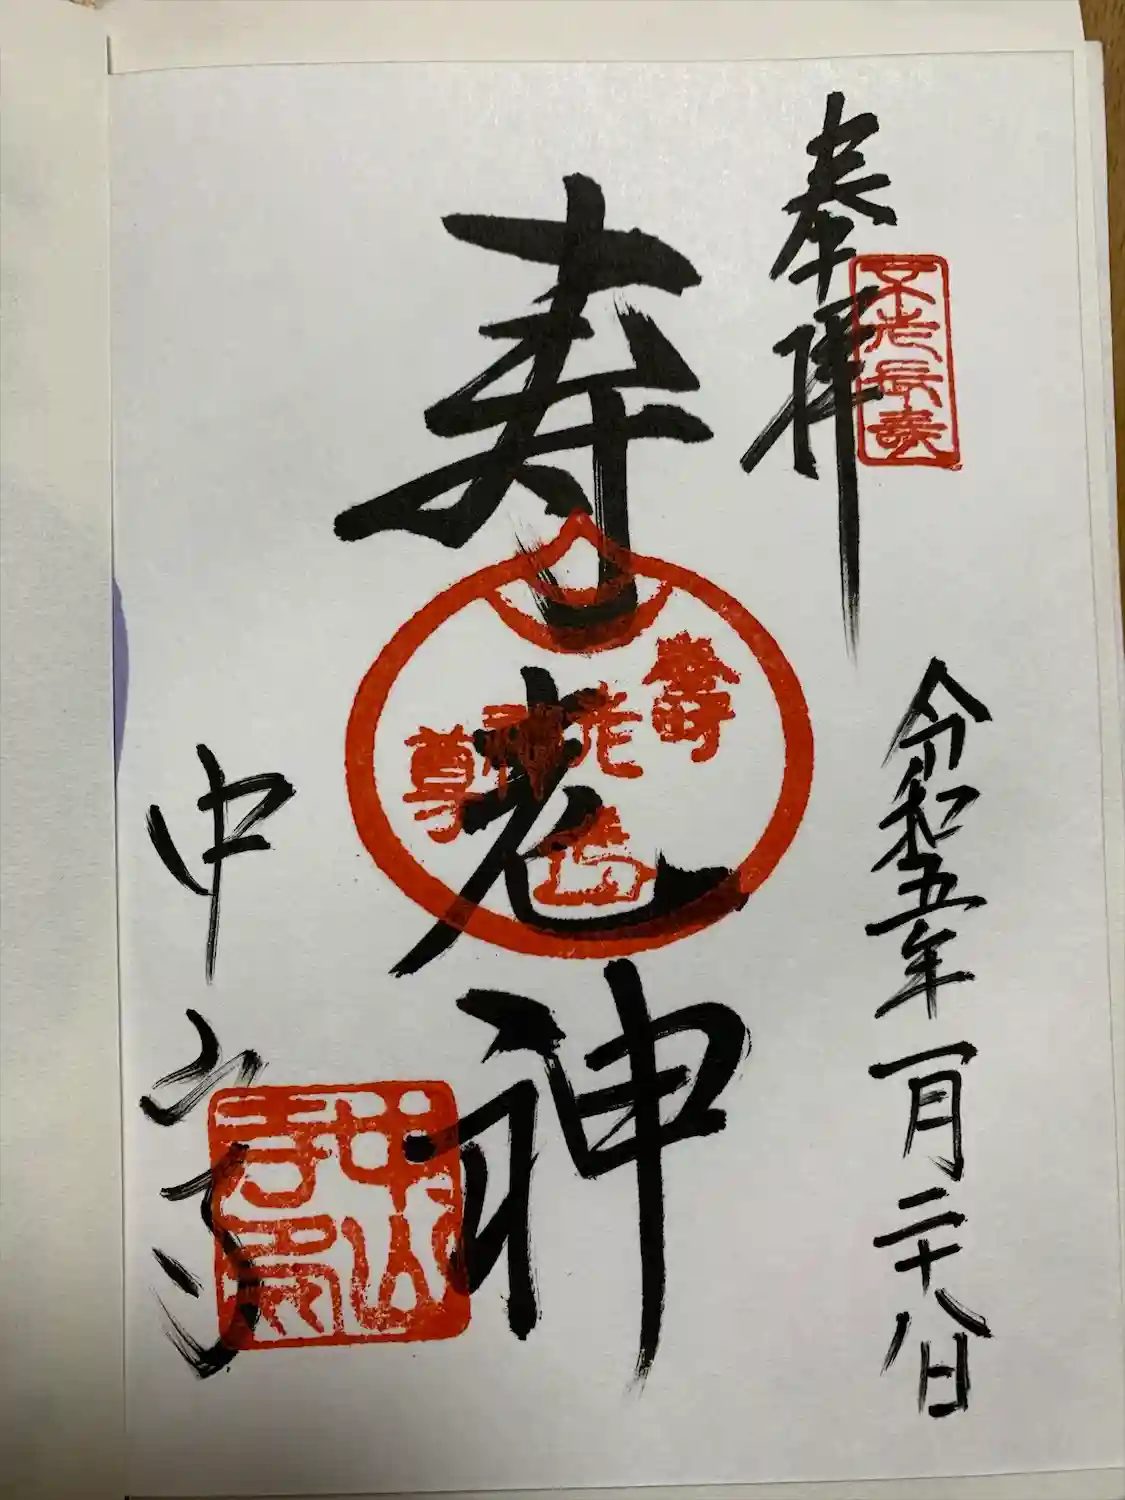 奉拝
不老長寿
令和五年一月二十八日
寿老神
壽老神尊
中山寺
中山寺印